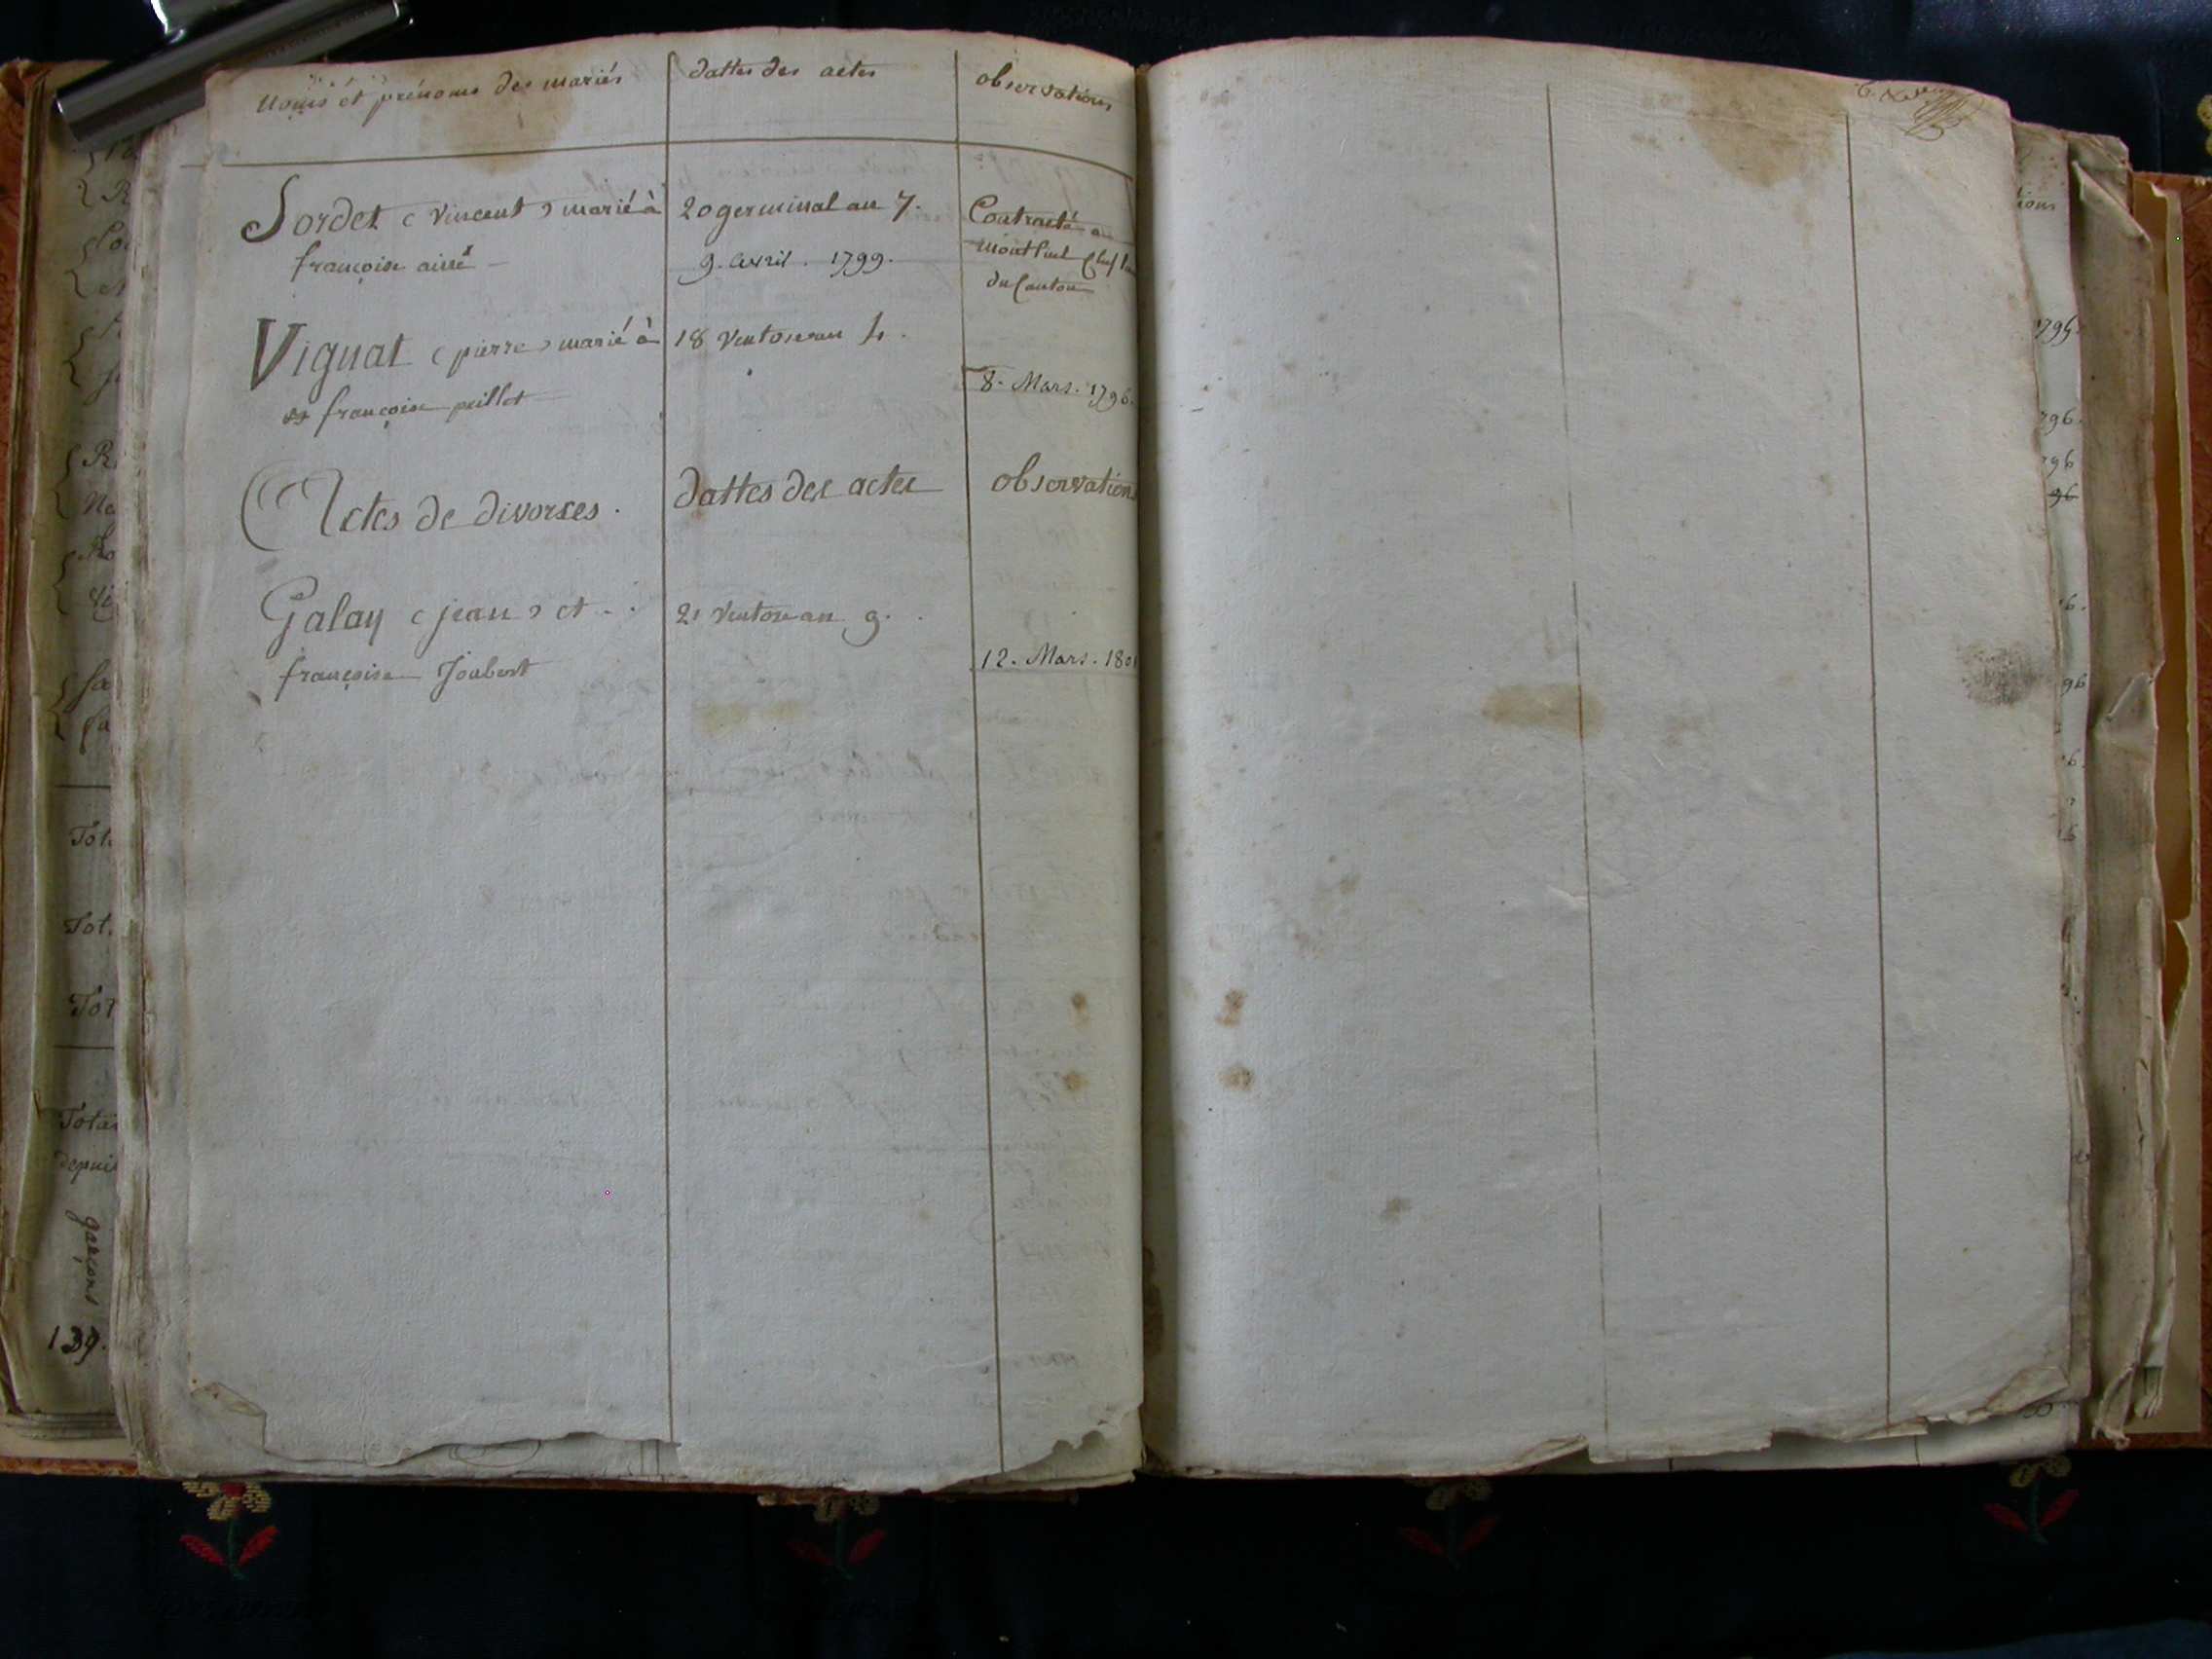 Noms et prénoms des mariés
dattes des actes
observations
Sordet (vincent) marié à
françoise
20 germinal an 7.
9. Avril. 1799.
Contracté a
montluel chef lieu
du Canton
Vignat (pierre) marié à
françoise peillet
18 Ventose an 4.
8. Mars. 1796.
Actes de divorses.
dattes des actes
observations
Galay (jean) et
françoise Joubert
21 Ventose an 9.
12. Mars. 1801
Tot
Tot.
Tot
Tota
depui
garçons
139.
ions
1795.
796.
796
96
96